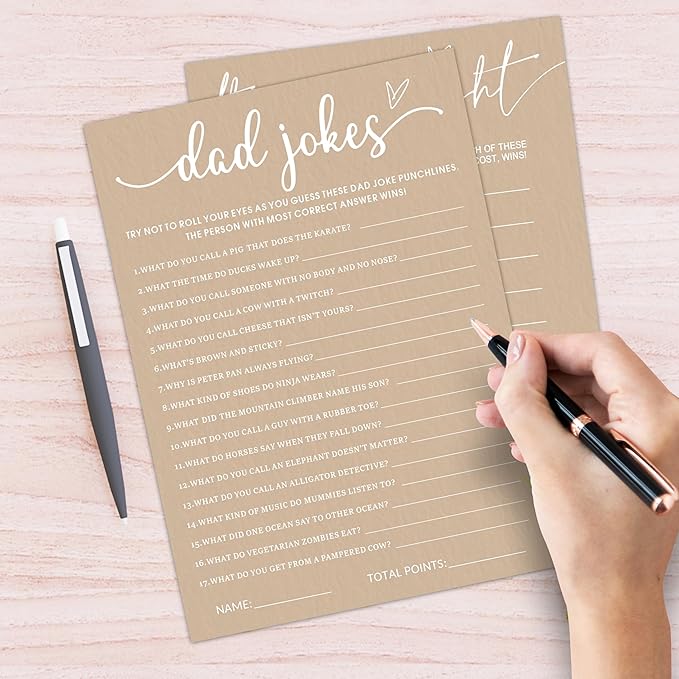 dad jokes
TRY NOT TO ROLL YOUR EYES AS YOU GUESS THESE DAD JOKE PUNCHLINES.
THE PERSON WITH MOST CORRECT ANSWER WINS!
1.WHAT DO YOU CALL A PIG THAT DOES THE KARATE?
2.WHAT THE TIME DO DUCKS WAKE UP?
3.WHAT DO YOU CALL SOMEONE WITH NO BODY AND NO NOSE?
4.WHAT DO YOU CALL A COW WITH A TWITCH?
5.WHAT DO YOU CALL CHEESE THAT ISN'T YOURS?
6.WHAT'S BROWN AND STICKY?
7.WHY IS PETER PAN ALWAYS FLYING?
8.WHAT KIND OF SHOES DO NINJA WEARS?
9.WHAT DID THE MOUNTAIN CLIMBER NAME HIS SON?
10.WHAT DO YOU CALL A GUY WITH A RUBBER TOE?
11.WHAT DO HORSES SAY WHEN THEY FALL DOWN?
12.WHAT DO YOU CALL AN ELEPHANT DOESN'T MATTER?
13.WHAT DO YOU CALL AN ALLIGATOR DETECTIVE?
14.WHAT KIND OF MUSIC DO MUMMIES LISTEN TO?
15.WHAT DID ONE OCEAN SAY TO OTHER OCEAN?
16.WHAT DO VEGETARIAN ZOMBIES EAT?
17.WHAT DO YOU GET FROM A PAMPERED COW?
NAME:
TOTAL POINTS:
ght
H OF THESE
COST, WINS!